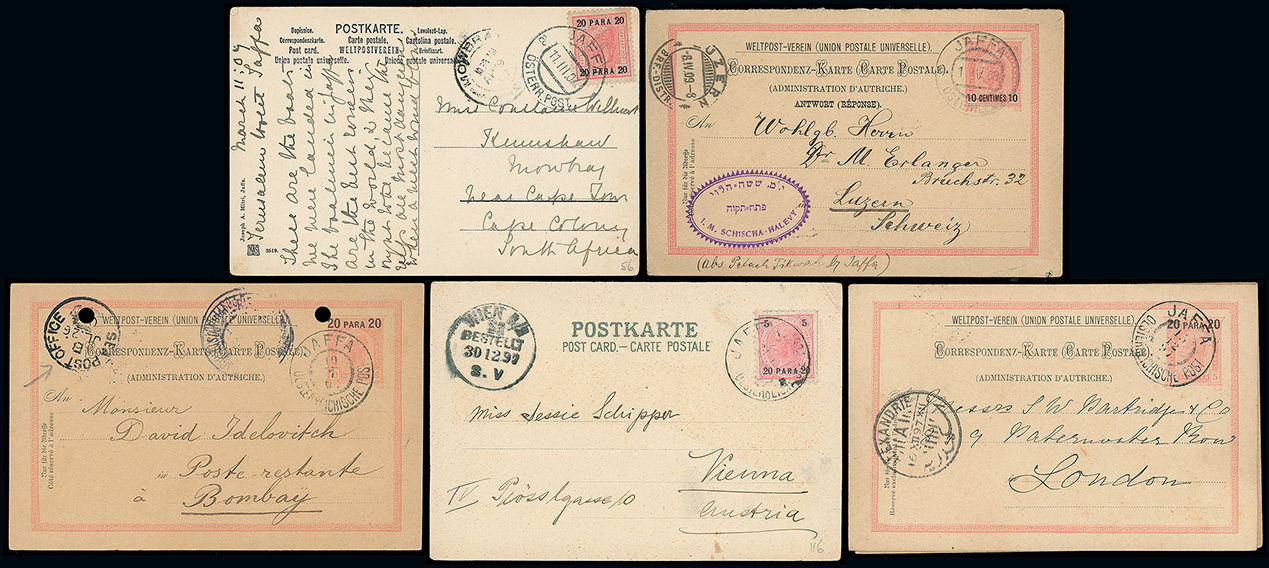 March 11: 07
Jerusalem book Jaffa
These are the boats
we were landed in
The boatmen in Jaffa
are the best rowers
in the world & they
must be because the
are most dangerous
Joseph A. Mitri, Jaffa.
3519.
POSTKARTE.
Dopisnice. Levelezö-Lap.
Correspondenzkarte. Carte postale. Cartolina postale.
Post card. WELTPOSTVEREIN. Briefkaart.
Union postale universelle. Union postale universelle.
20 PARA 20
20 PARA 20
JAFFA
11.III.07
ÖSTERR. POST
MOWBRAY
Miss Constance
Kenishaw
Mowbray
Near Cape Town
Cape Colony
South Africa
56
WELTPOST-VEREIN (UNION POSTALE UNIVERSELLE).
CORRESPONDENZ-KARTE (CARTE POSTALE).
(ADMINISTRATION D'AUTRICHE).
ANTWORT (RÉPONSE).
10 CENTIMES 10
JAFFA
LUZERN
8.IV.09-8
BRF.-DISTR.
Nur für die Adresse
Côté réservé à l'adresse.
An
Wohlgb. Herrn
Dr M. Erlanger
Bruchstr. 32
Luzern
Schweiz
י.מ. ששה-הלוי
פתח-תקוה
I. M. SCHISCHA-HALEVY
(abs. Petach Tikwah by Jaffa)
WELTPOST-VEREIN (UNION POSTALE UNIVERSELLE)
20 PARA 20
CORRESPONDENZ-KARTE (CARTE POSTALE)
(ADMINISTRATION D'AUTRICHE).
POST OFFICE
JAFFA
OESTERREICHISCHE POST
Nur für die Adresse
Côté réservé à l'adresse.
An
Monsieur
David Idelovitch
in Poste-restante
à
Bombay
POSTKARTE
POST CARD.—CARTE POSTALE
WIEN
BESTELLT
30 12 97
8. V
5 5
20 PARA 20
JAFFA
OESTERREICHISCHE POST
Miss Jessie Schipper
Vienna
IV Plösslgasse 10
Austria
116
WELTPOST-VEREIN (UNION POSTALE UNIVERSELLE).
20 PARA 20
CORRESPONDENZ-KARTE (CARTE POSTALE).
(ADMINISTRATION D'AUTRICHE).
JAFFA
OESTERREICHISCHE POST
5
ALEXANDRIE
16 XII 97
Nur für die Adresse
Messrs S W Partridge & Co
9 Paternoster Row
London